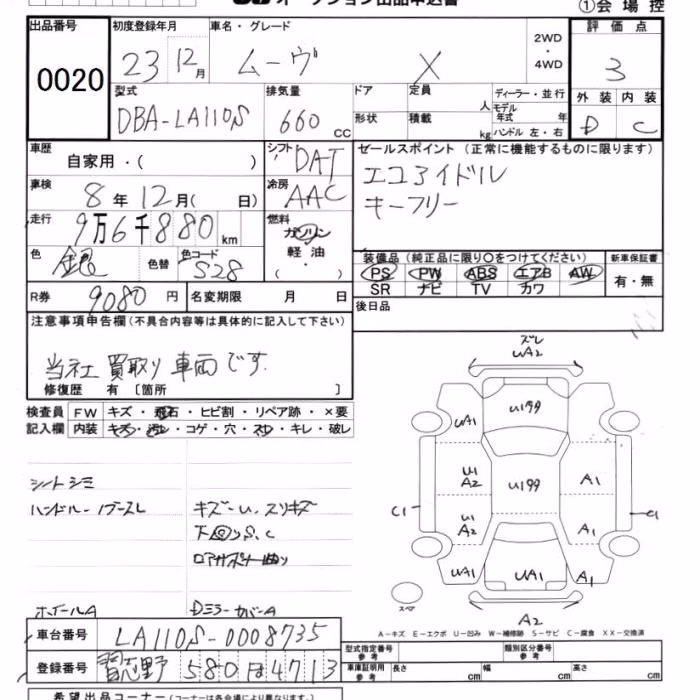 オークション出品申込書
①会場控
出品番号 初度登録年月 車名・グレード 評価点
0020 23年12月 ムーヴ X 2WD・4WD 3
型式 排気量 ドア 定員 人 ディーラー・並行 外装 内装
DBA-LA110S 660 CC 形状 積載 kg モデル年式 年 ハンドル 左・右 D C
車歴 自家用・( ) シフト DAT セールスポイント(正常に機能するものに限ります)
車検 8年12月( 日) 冷房 AAC エコアイドル
キーフリー
走行 9万6千880km 燃料 ガソリン 軽油・( )
色 銀 色替 色コード S28 装備品(純正品に限り〇をつけてください) 新車保証書
PS PW ABS エアB AW 有・無
SR ナビ TV カワ
R券 9080円 名変期限 月 日 後日品
注意事項申告欄(不具合内容等は具体的に記入して下さい)
当社買取り車両です.
修復歴 有 〔箇所 〕
検査員 FW キズ・飛石・ヒビ割・リペア跡・×要
記入欄 内装 キズ・汚レ・コゲ・穴・スレ・キレ・破レ
シートシミ
ハンドル キズ-U.スリキズ
下回りS.C
ロアサポナー曲り
ホイールA Dミラーカバー A
ズレ
UA2
UA1 U199
U1 A2 U199 A1
C1 U1 A2 A1 C1
UA1 UA1 A1
スペア
A2
A-キズ E-エクボ U-凹み W-補修跡 S-サビ C-腐食 XX-交換済
車台番号 LA110S-0008735 型式指定番号 類別区分番号
参考 参考
登録番号 習志野 580 ほ 4713 車庫証明用 参考 長さ cm 幅 cm 高さ cm
希望出品コーナー(コーナーは各会場により異なります。)